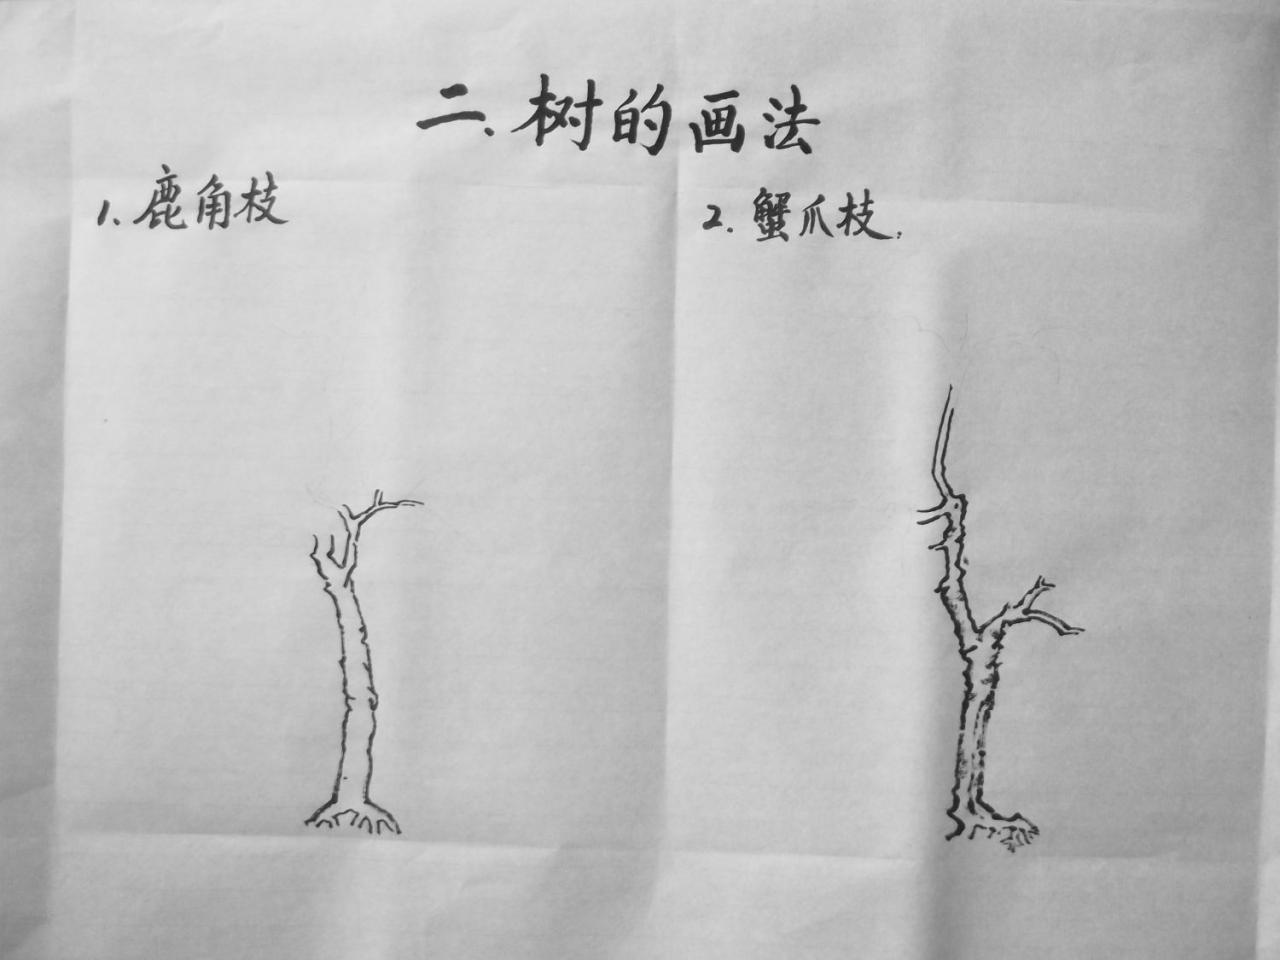 二、树的画法
1.鹿角枝
2.蟹爪枝.